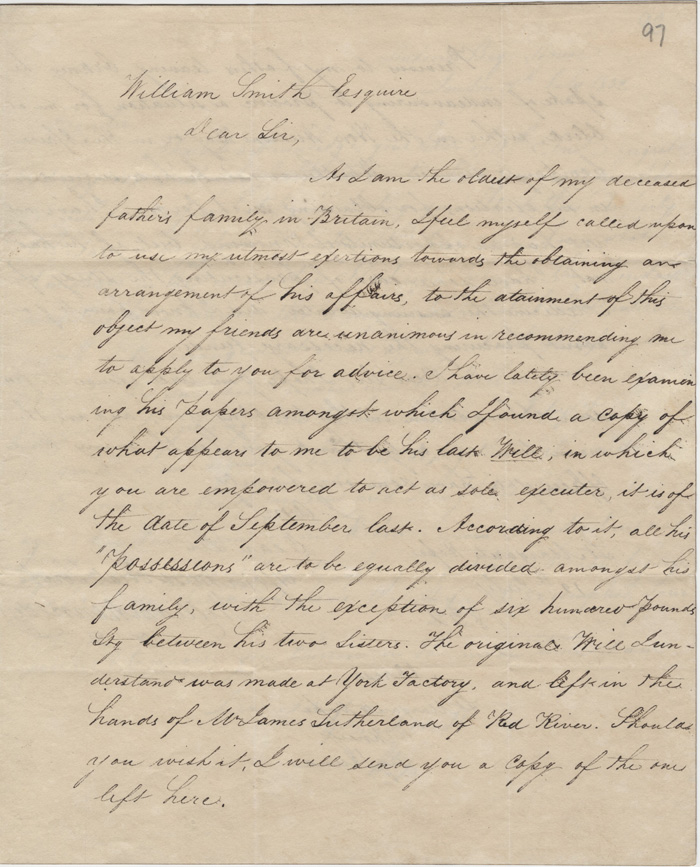 97
William Smith Esquire
Dear Sir,
As I am the oldest of my deceased
father's family in Britain, I feel myself called upon
to use my utmost exertions towards the obtaining an
arrangement of his affairs, to the atainment of this
object my friends are unanimous in recommending me
to apply to you for advice. I have lately been examin
ing his papers amongst which I found a copy of
what appears to me to be his last Will, in which
you are empowered to act as sole executer, it is of
the date of September last. According to it, all his
"possessions" are to be equally divided amongst his
family, with the exception of six hundred Pounds
Stg between his two Sisters. The original Will I un-
derstand was made at York Factory, and left in the
hands of Mr James Sutherland of Red River. Should
you wish it, I will send you a copy of the one
left here.